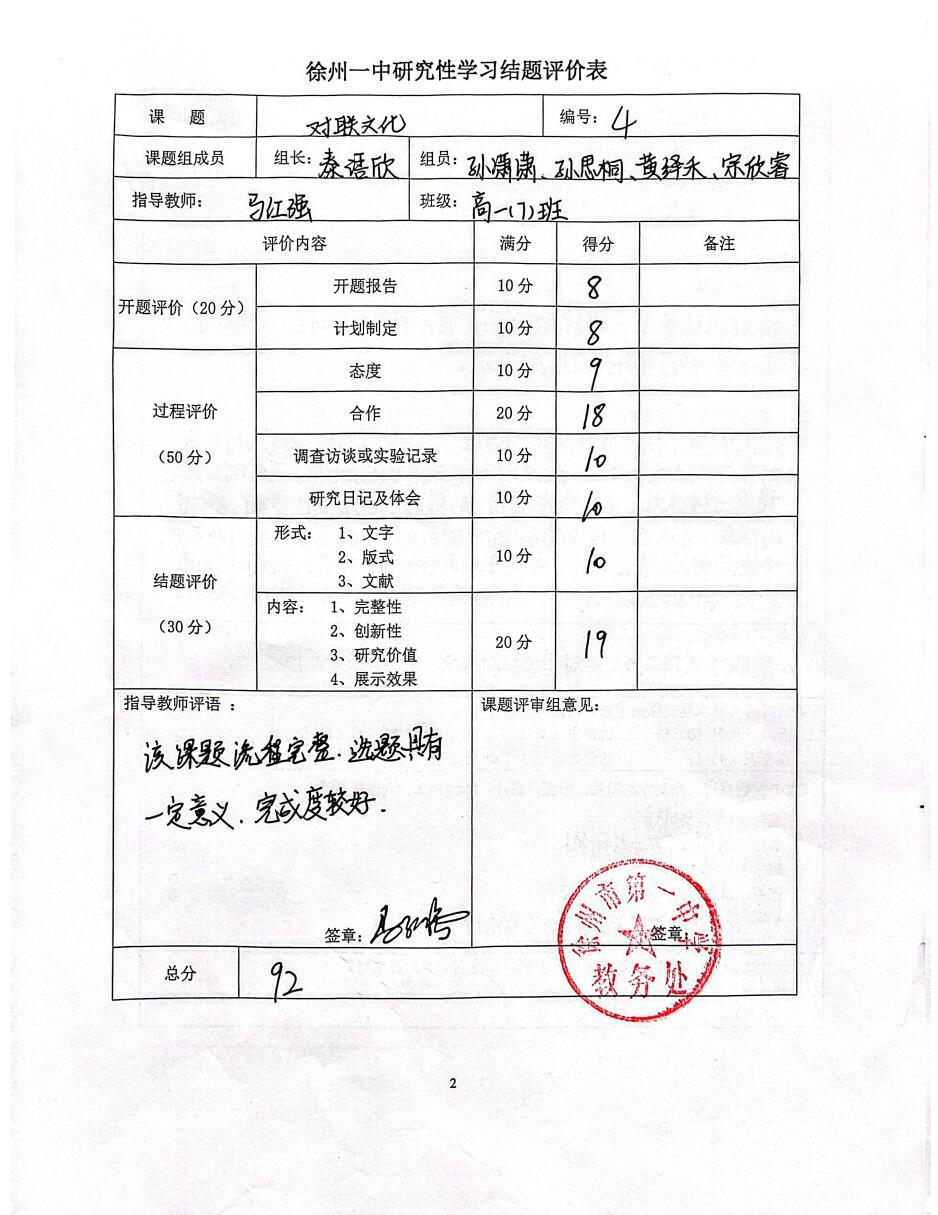 徐州一中研究性学习结题评价表
课 题 对联文化 编号: 4
课题组成员 组长: 秦语欣 组员: 孙潇潇、孙思桐、黄绎禾、宋欣睿
指导教师: 马红强 班级: 高一(7)班
评价内容 满分 得分 备注
开题评价(20分) 开题报告 10分 8
计划制定 10分 8
过程评价(50分) 态度 10分 9
合作 20分 18
调查访谈或实验记录 10分 10
研究日记及体会 10分 10
结题评价(30分) 形式: 1、文字
2、版式
3、文献
10分 10
内容: 1、完整性
2、创新性
3、研究价值
4、展示效果
20分 19
指导教师评语 :
该课题流程完整.选题具有
一定意义.完成度较好.
签章:
课题评审组意见:
签章:
徐州市第一中学
教务处
总分 92
2